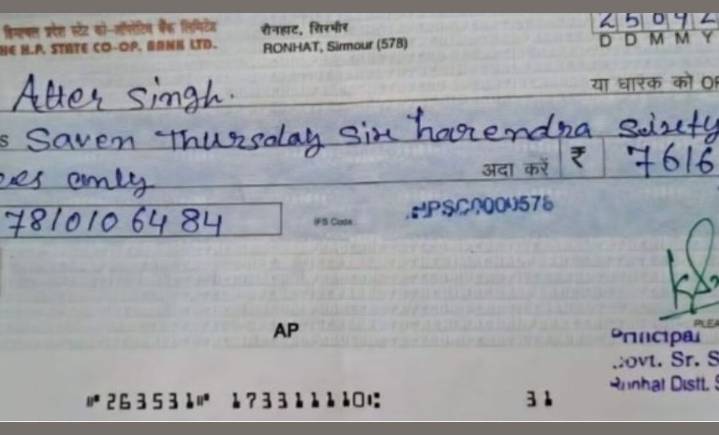 हिमाचल प्रदेश स्टेट को-ऑपरेटिव बैंक लिमिटेड
HE H.P. STATE CO-OP. BANK LTD.
रोनहाट, सिरमौर
RONHAT, Sirmour (578)
2 5 0 9 2
D D M M Y
Atter Singh.
या धारक को OR
s Saven Thursday Six harendra Seixty
ees only
अदा करें ₹ 7616
78101064 84
IFS Code
HPSC0000578
AP
PLEA
Principal
Govt. Sr. S
Ronhat Distt. S
⑈263531⑈ 173311110⑆ 31